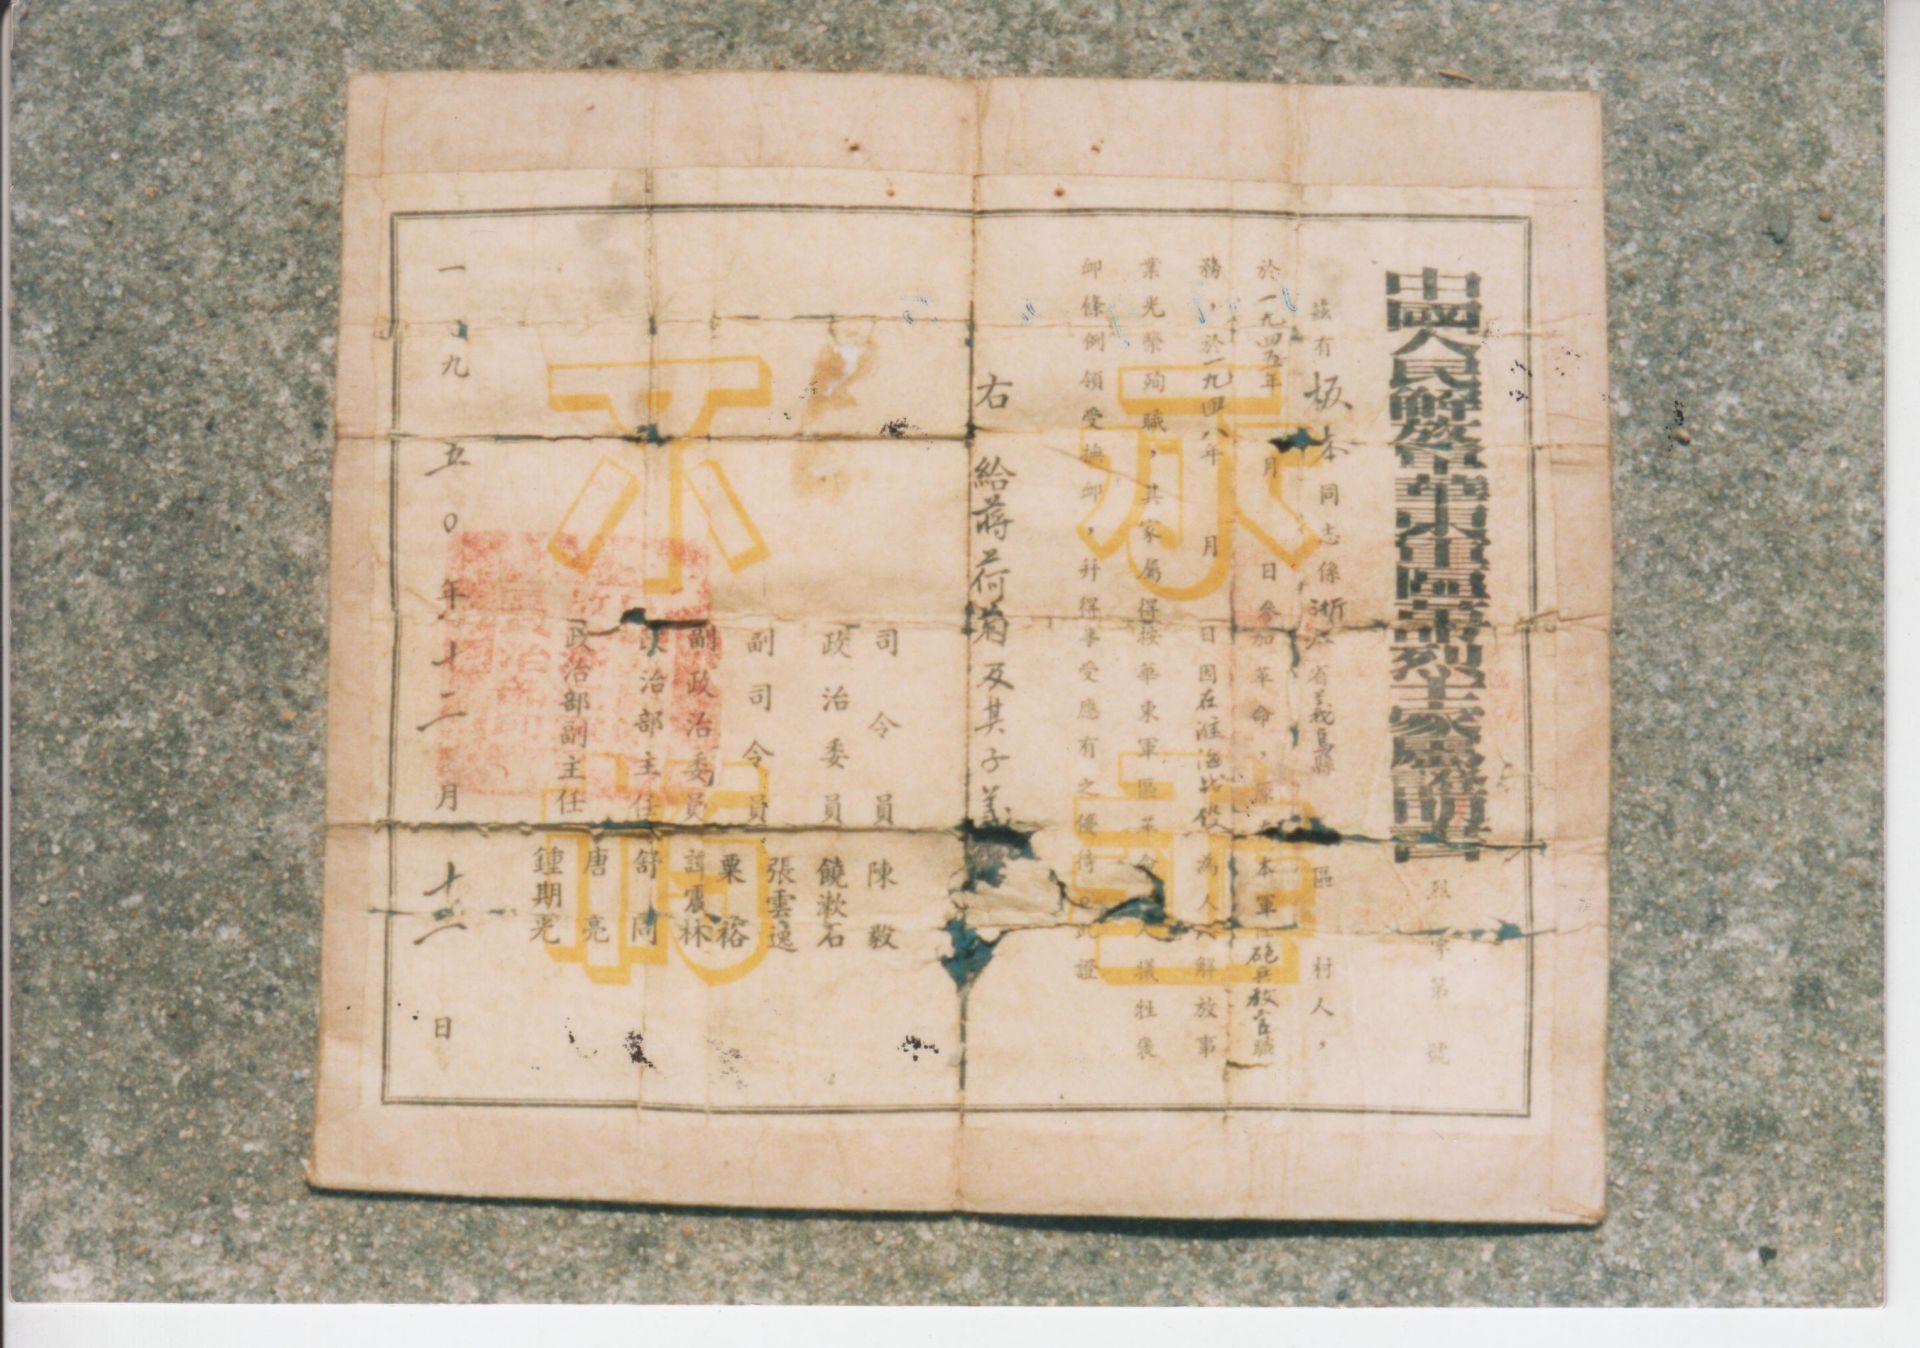 中國人民解放軍華東軍區革命烈士家屬證明書
烈 字第 號
茲有 坂本 同志係 浙江 省 義烏縣 區 村人，
於一九四五年 月 日參加革命，原 本軍 砲兵教官職
務，於一九四八年 月 日因在淮海戰役為人 解放事
業光榮殉職，其家屬得按華東軍區革命 人犧牲褒
卹條例領受撫卹，幷得享受應有之優待。此證
右給蔣荷菊及其子義
司令員 陳毅
政治委員 饒漱石
副司令員 張雲逸
粟裕
副政治委員 譚震林
政治部主任 舒同
政治部副主任 唐亮
鍾期光
一九五〇年十二月十二日
永垂
不朽